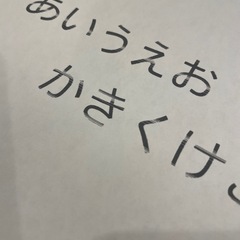 あいうえお
かきくけ